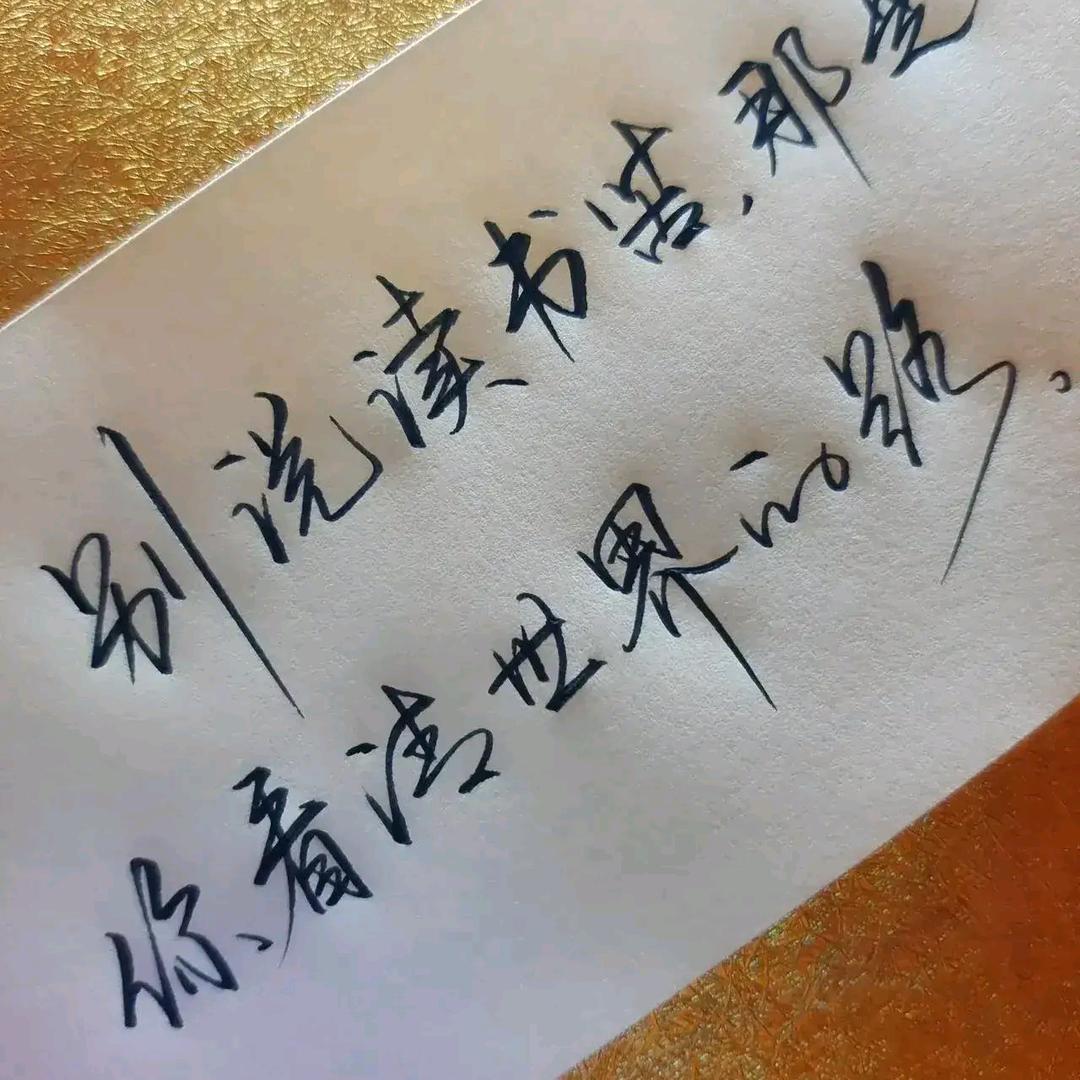 别说读书苦，那是
你看清世界的路。